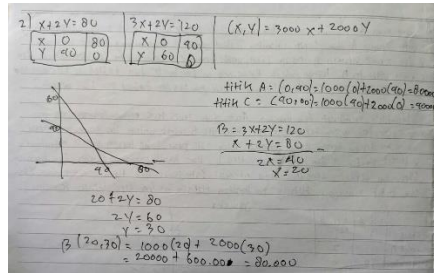 2) x+2y=80
X 0 80
Y 40 0
3x+2y=120
X 0 40
Y 60 0
(x,y)=3000x+2000y
titik A = (0,40)=1000(0)+2000(40)=80000
titik C = (40,00)=1000(40)+2000(0)=40000
B = 3x+2y=120
x+2y=80 -
2x=40
x=20
60
40
40 80
20+2y=80
2y=60
y=30
B (20,30)=1000(20)+2000(30)
=20000+600.000=80.000